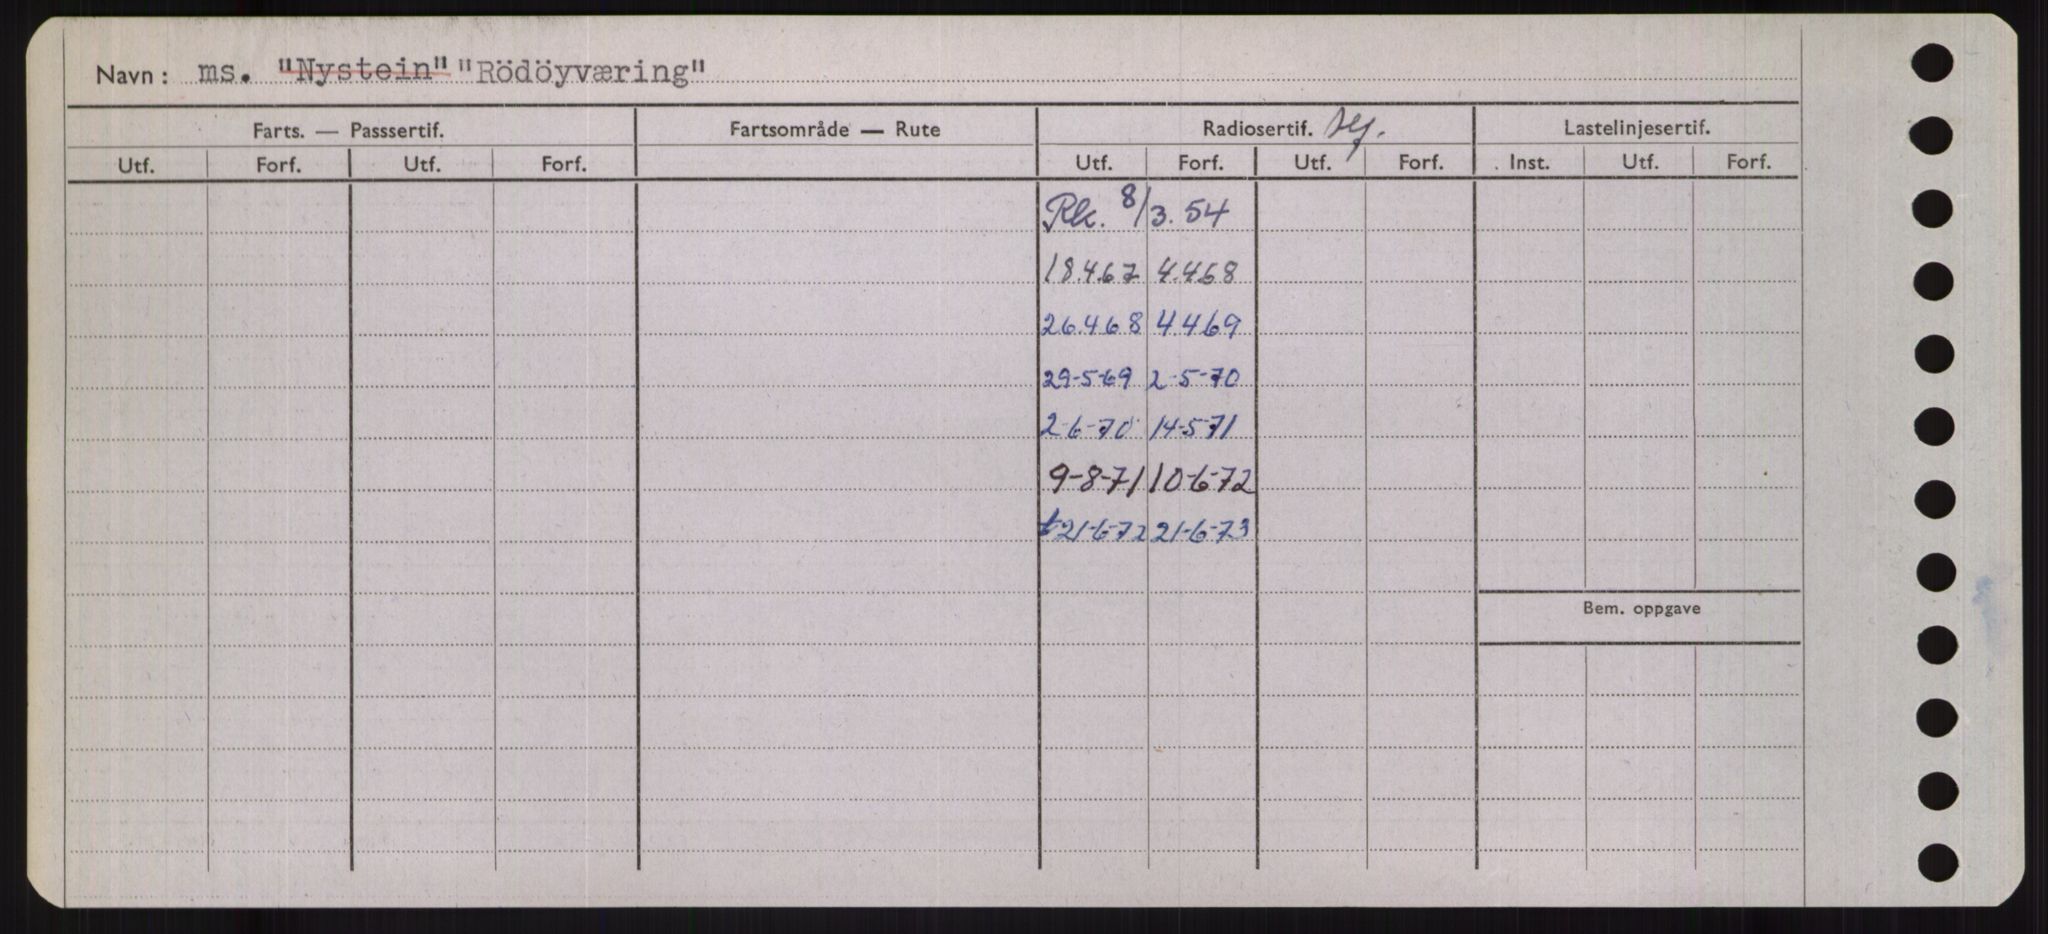 Navn: ms. "Nystein" "Rödöyværing"
Farts. — Passsertif. Fartsområde — Rute Radiosertif. Lastelinjesertif.
Utf. Forf. Utf. Forf. Utf. Forf. Utf. Forf. Inst. Utf. Forf.
Rk. 8/3.54
18.4.67 4.4.68
26.4.68 4.4.69
29-5-69 2-5-70
2-6-70 14-5-71
9-8-71 10-6-72
21-6-72 21-6-73
Bem. oppgave